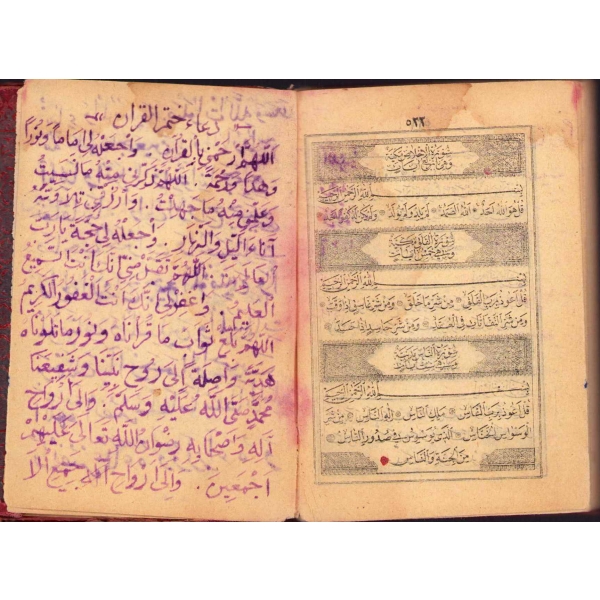 ٥٢٢
سورة الاخلاص مكية
وهي اربع ايات
بسم الله الرحمن الرحيم
قل هو الله احد الله الصمد لم يلد ولم يولد ولم يكن له كفوا احد
سورة الفلق مكية
وهي خمس ايات
بسم الله الرحمن الرحيم
قل اعوذ برب الفلق من شر ما خلق ومن شر غاسق اذا وقب
ومن شر النفاثات في العقد ومن شر حاسد اذا حسد
سورة الناس
بسم الله الرحمن الرحيم
قل اعوذ برب الناس ملك الناس اله الناس من شر
الوسواس الخناس الذي يوسوس في صدور الناس
من الجنة والناس
دعاء ختم القران
اللهم ارحمني بالقران واجعله لي اماما ونورا
وهدا ورحمة اللهم ذكرني منه ما نسيت
وعلمني منه ما جهلت وارزقني تلاوته
آناء اليل والنهار واجعله لي حجة يا رب
العالمين اللهم تقبل مني انك انت السميع
العليم واغفر لي انك انت الغفور الكريم
اللهم بلغ ثواب ما قراناه ونور ما تلوناه
هدية واصلة الى روح نبينا وشفيعنا
محمد صلى الله عليه وسلم والى ارواح
آله واصحابه رضوان الله تعالى عليهم
اجمعين والى ارواح